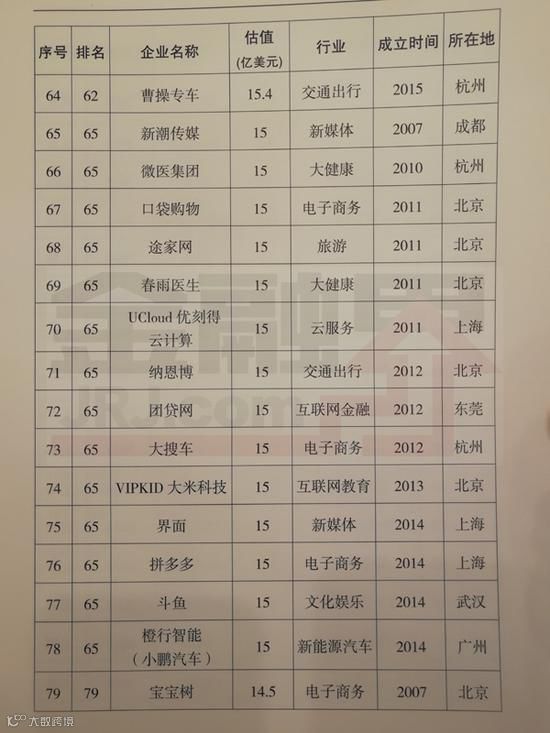 序号 排名 企业名称 估值 (亿美元) 行业 成立时间 所在地
64 62 曹操专车 15.4 交通出行 2015 杭州
65 65 新潮传媒 15 新媒体 2007 成都
66 65 微医集团 15 大健康 2010 杭州
67 65 口袋购物 15 电子商务 2011 北京
68 65 途家网 15 旅游 2011 北京
69 65 春雨医生 15 大健康 2011 北京
70 65 UCloud 优刻得 云计算 15 云服务 2011 上海
71 65 纳恩博 15 交通出行 2012 北京
72 65 团贷网 15 互联网金融 2012 东莞
73 65 大搜车 15 电子商务 2012 杭州
74 65 VIPKID 大米科技 15 互联网教育 2013 北京
75 65 界面 15 新媒体 2014 上海
76 65 拼多多 15 电子商务 2014 上海
77 65 斗鱼 15 文化娱乐 2014 武汉
78 65 橙行智能 (小鹏汽车) 15 新能源汽车 2014 广州
79 79 宝宝树 14.5 电子商务 2007 北京
金融界
JRJ.com
大数跨境